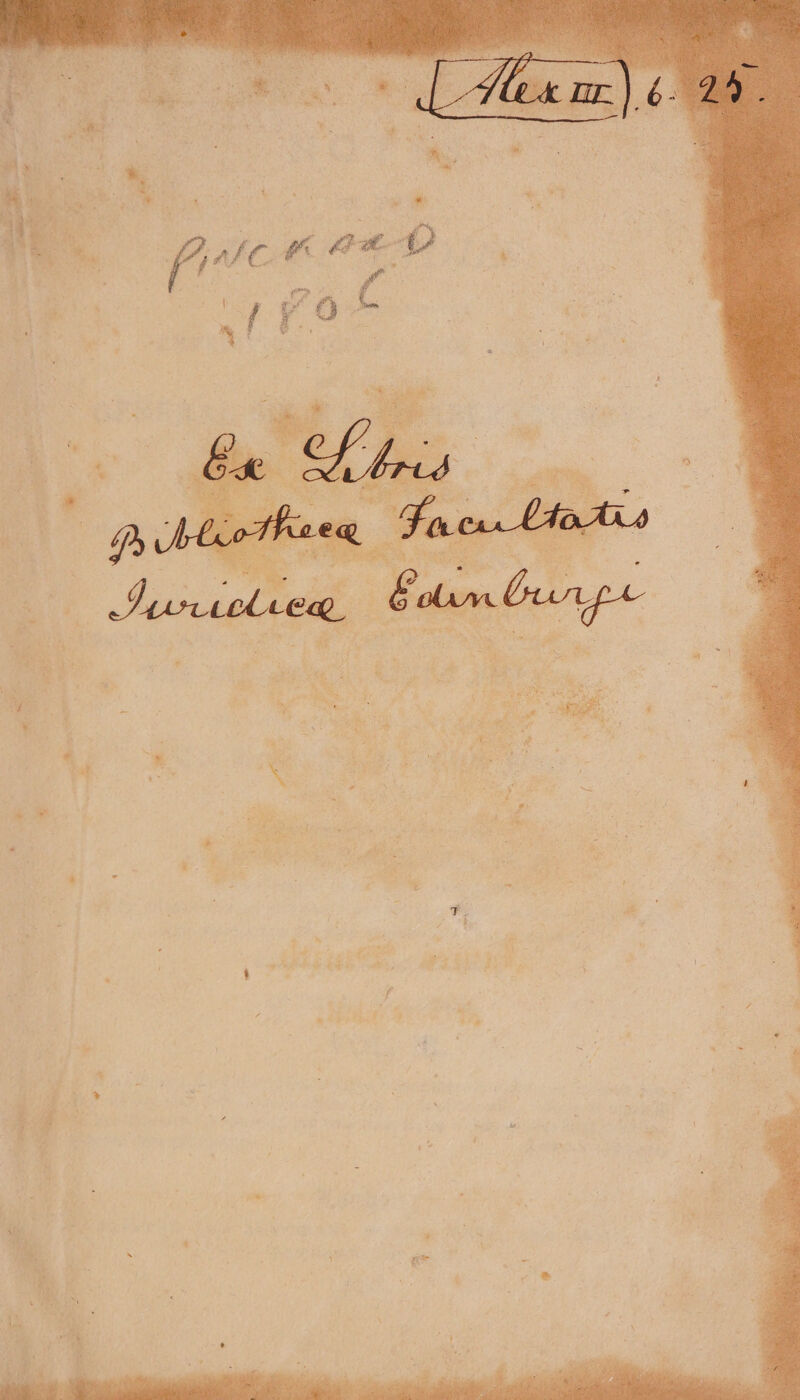 [Alex III) 6. 25.
Ex Libris
Bibliothecæ Facultatis
Juridicæ Edinburgi